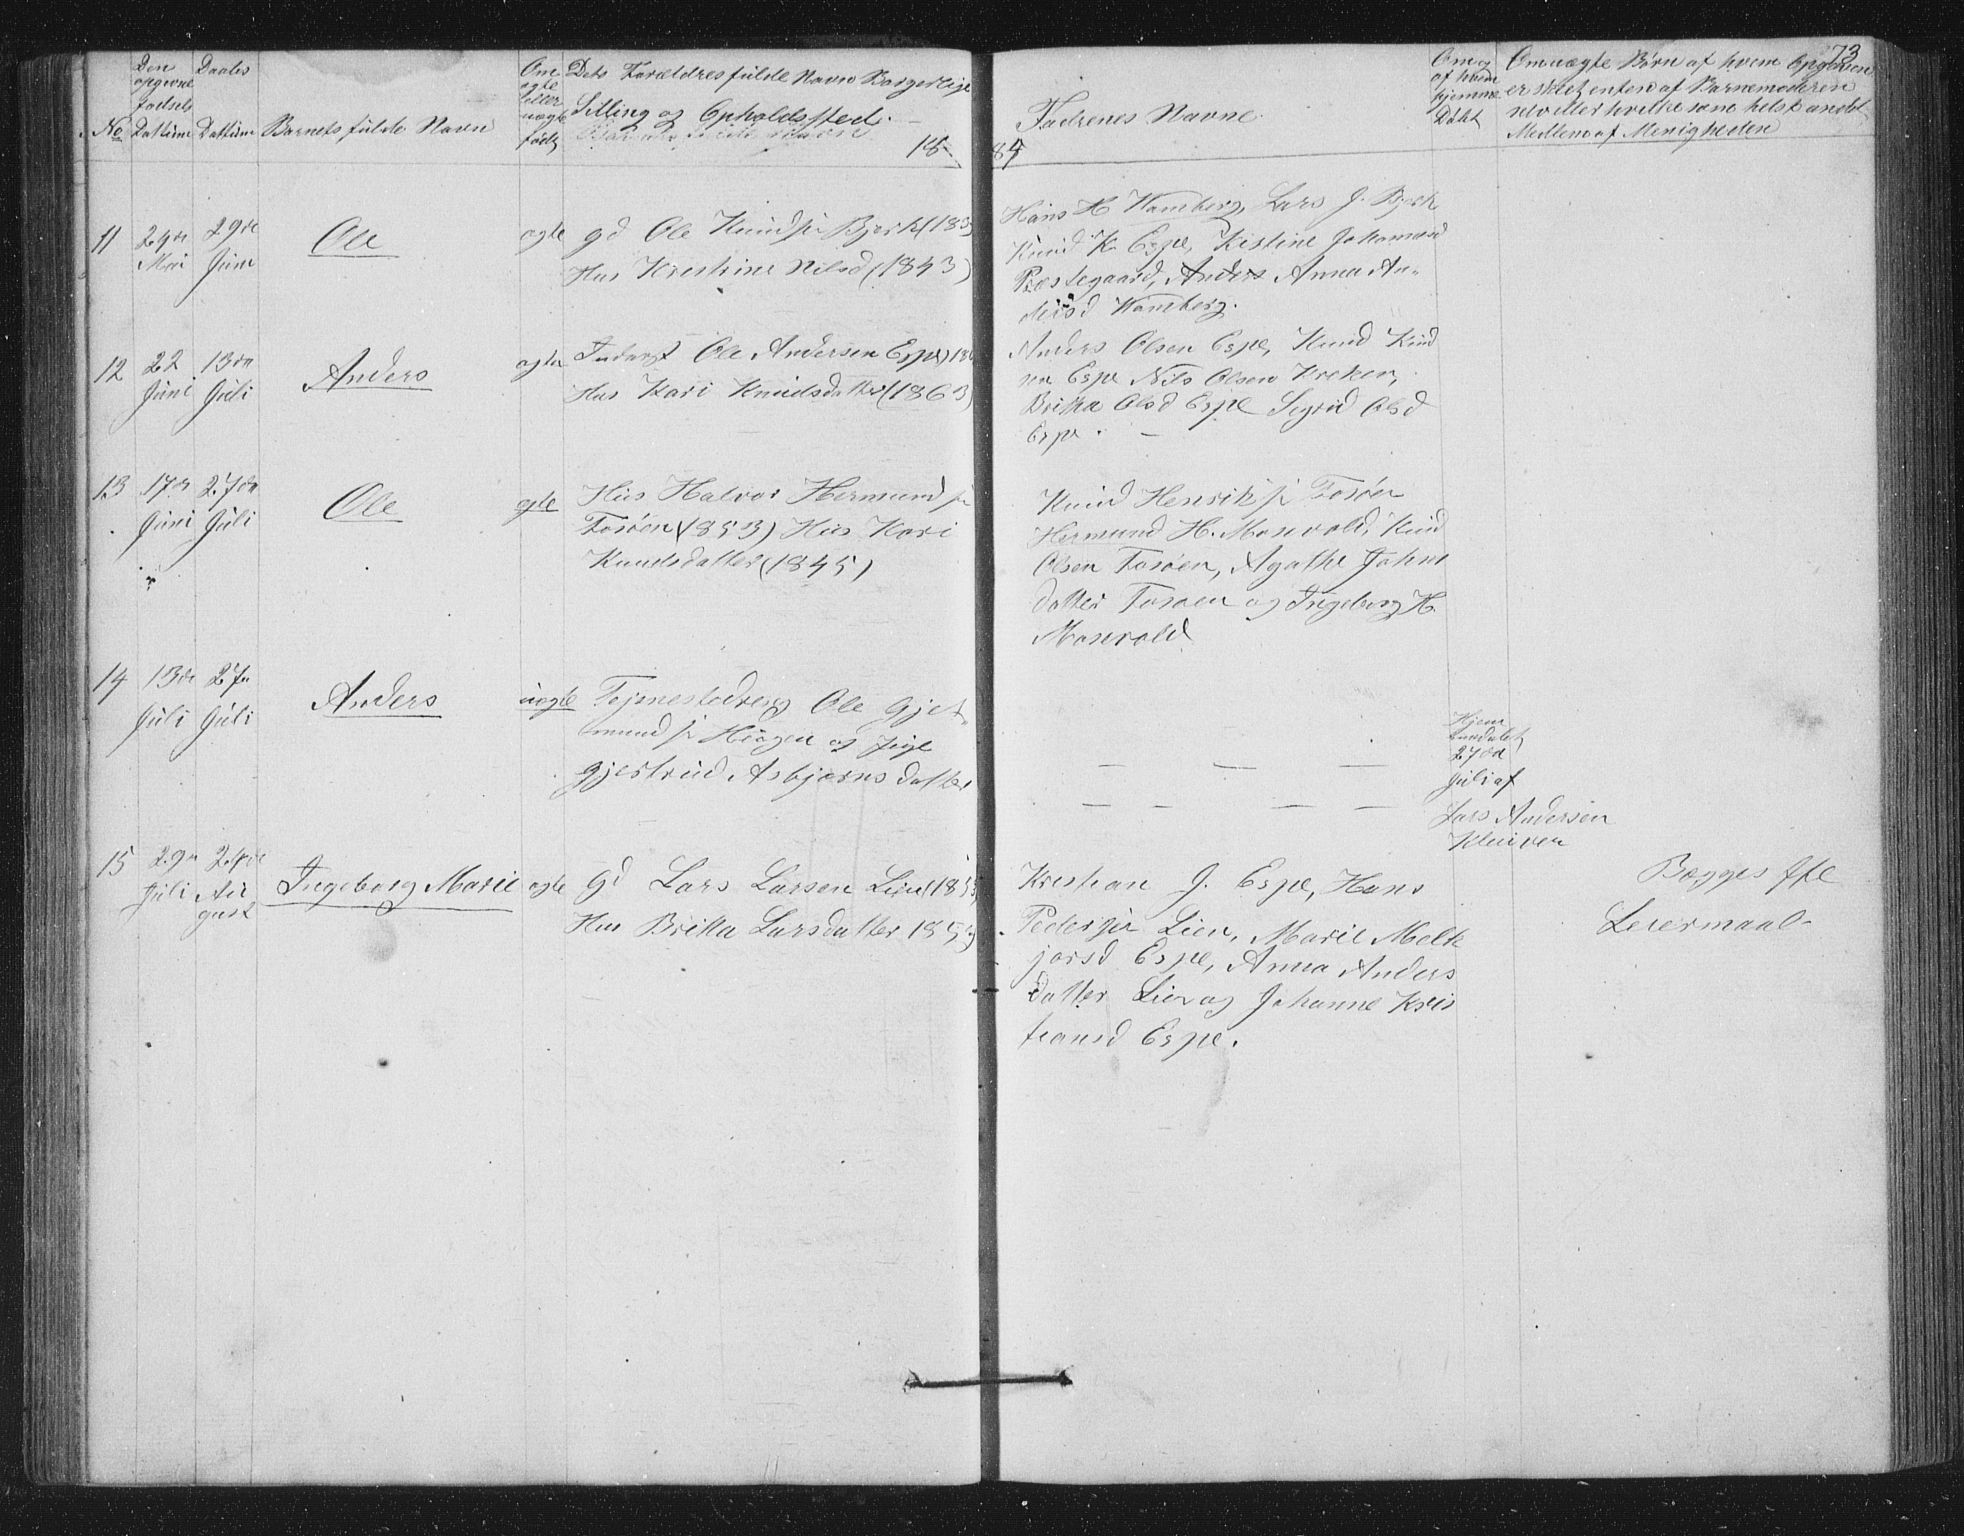 73
Den opgivne fødsels Dattum
Daabs Dattum
No
Barnets fulde Navn
Om ægte eller uægte født
Dets Forældres fulde Navn Borgerlige
Stilling og Opholdssted.
18
84
Fadrenes Navne.
Om og af hvem hjemme Døbt
Om uægte Børn af hvem Opgivelsen
er skeet enten af Barnemoderen
selv eller hvilke som helst andet
Medlem af Menigheden
11
24de Mai
29de Juni
Ole
ægte
Gd Ole Knuds Bjørk
Hus Krestine Nilsd (1843)
Hans H Hamberg, Lars J. Bjørk
Knud K. Espe, Kistine Johannesd
Præstegaard, Anders Anna An-
dersd Hamberg.
12
22 Juni
13de Juli
Anders
ægte
Ole Andersen Espe
Hus Kari Knudsdatter (1863)
Anders Olsen Espe, Knud Knud
sen Espe Nils Olsen Kreken,
Britha Olsd Espe Sigrid Olsd
Espe. —
13
17de Juni
27de Juli
Ole
ægte
Hus Halvor Hermund
Fosøen (1853) Hus Kari
Knudsdatter (1845)
Knud Henrik Fosøen
Hermund H. Monvold, Knud
Olsen Fosøen, Agathe Johns
datter Fosøen og Ingeborg H.
Monvold
14
13de Juli
27de Juli
Anders
uægte
Ole Gjer-
mund Haugen og Pige
Gjertrud Asbjørns datter
Hjem
medøbt
27de
Juli af
Lars Andersen
Kleiven
Begges 1ste
Leiermaal
15
29de Juli
24de August
Ingeborg Marie
ægte
Gd Lars Larsen Lien (1853)
Hus Britha Larsdatter
Kristian J. Espe, Hans
Peders Lien, Marie Melk
jorsd Espe, Anna Anders
datter Lien og Johanne Kris
tiansd Espe.